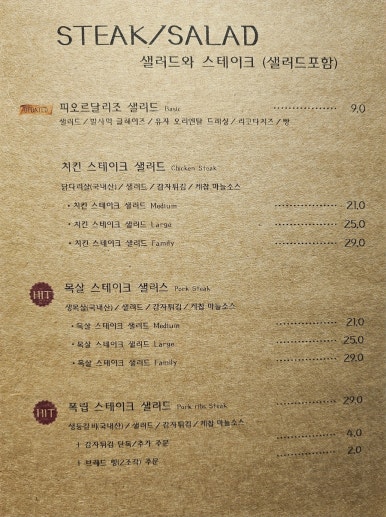 STEAK/SALAD
샐러드와 스테이크 (샐러드포함)
피오르달리조 샐러드 Basic 9.0
샐러드 / 발사믹 글레이즈 / 유자 오리엔탈 드레싱 / 리코타치즈 / 빵
치킨 스테이크 샐러드 Chicken Steak
닭다리살(국내산) / 샐러드 / 감자튀김 / 케찹 마늘소스
• 치킨 스테이크 샐러드 Medium 21.0
• 치킨 스테이크 샐러드 Large 25.0
• 치킨 스테이크 샐러드 Family 29.0
HIT 목살 스테이크 샐러스 Pork Steak
생목살(국내산) / 샐러드 / 감자튀김 / 케찹 마늘소스
• 목살 스테이크 샐러드 Medium 21.0
• 목살 스테이크 샐러드 Large 25.0
• 목살 스테이크 샐러드 Family 29.0
HIT 폭립 스테이크 샐러드 Pork ribs Steak 29.0
생등갈비(국내산) / 샐러드 / 감자튀김 / 케찹 마늘소스
+ 감자튀김 단품/추가 주문 4.0
+ 브레드 빵(2조각) 주문 2.0